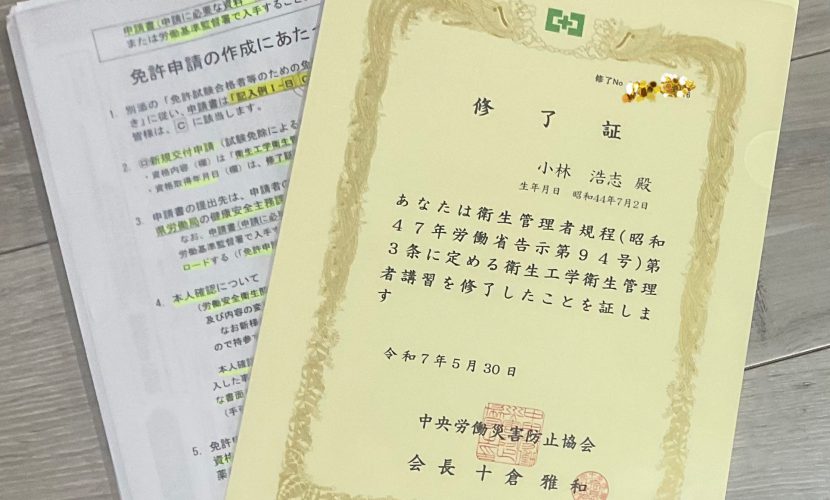 申請書(申請に必要な資料
または労働基準監督署で入手すること
免許申請の作成にあたっ
1. 別添の「免許試験合格者等のための免
き」に従い、申請書は「記入例Ⅰ-B
皆様は、C に該当します。
2. 新規交付申請(試験免除による
・資格内容(欄)は「衛生工学衛生管
・資格取得年月日(欄)は、修了証
3. 申請書の提出先は、申請者の
県労働局の健康安全主務課
なお、申請書(申請に必
労働基準監督署で入手す
ロードする(「免許申
4. 本人確認について
(労働安全衛生
及び内容の変
なお新様
ので持参
本人確認
入した事
な書面
(手
5. 免許申
資格
薬
修了No
修了証
小林 浩志 殿
生年月日 昭和44年7月2日
あなたは衛生管理者規程(昭和
47年労働省告示第94号)第
3条に定める衛生工学衛生管理
者講習を修了したことを証しま
す
令和7年5月30日
中央労働災害防止協会
会長 十倉 雅和